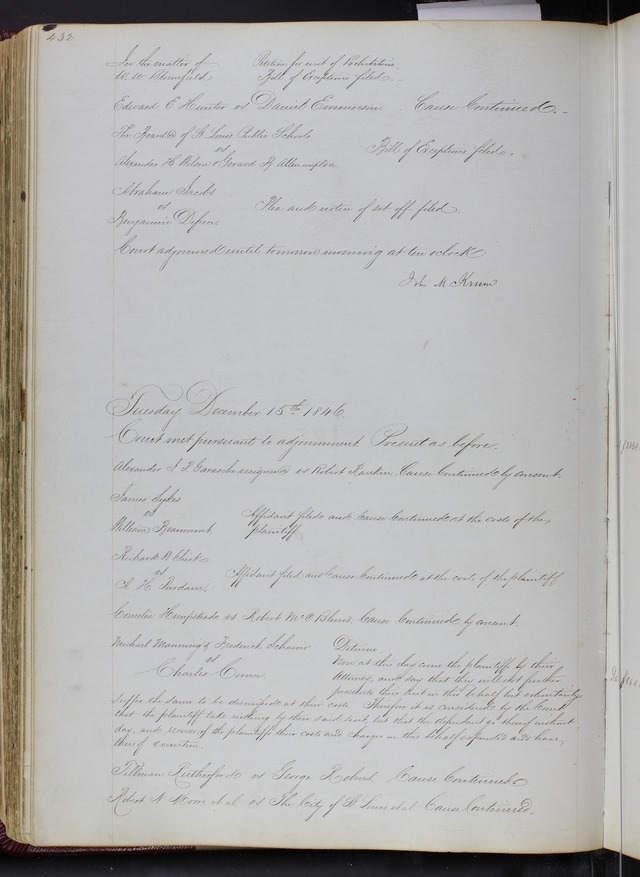 432
In the matter of Petition for writ of Prohibition
W. W. Blomfield Bill of Exceptions filed.
Edward C Hunter vs Daniel Emmerson Cause Continued.
The Board of St Louis Public Schools
vs Bill of Exceptions filed.
Alexander H & Gerard B Allen
Abraham Jacobs
vs Plea and notice of set off filed.
Benjamin
Court adjourned until tomorrow morning at ten oclock
John M Krum
Tuesday December 15th 1846.
Court met pursuant to adjournment Present as before.
Alexander J P Garesche assignee vs Robert Rankin Cause Continued by consent.
James Sykes
vs Affidavit filed and Cause Continued at the costs of the
William Beaumont. plaintiff
Richard W Chick
vs Affidavit filed and Cause Continued at the costs of the plaintiff
A. H. Purdom.
Cornelia Hempstead vs Robert McO Blews. Cause Continued by consent
Michael Manning & Frederick Detinue
vs Now at this day come the plaintiffs by their
Charles attorney, and say that they will not further
prosecute their suit in this behalf but voluntarily
suffer the same to be dismissed at their costs. Therefore it is considered by the Court
that the plaintiffs take nothing by their said suit, but that the defendant go thereof without
day, and recover of the plaintiffs their costs and charges in this behalf expended and have
thereof execution.
Tillman Rutherford vs George Roberts, Cause Continued
Robert N Moore et al vs The City of St Louis et al Cause Continued.